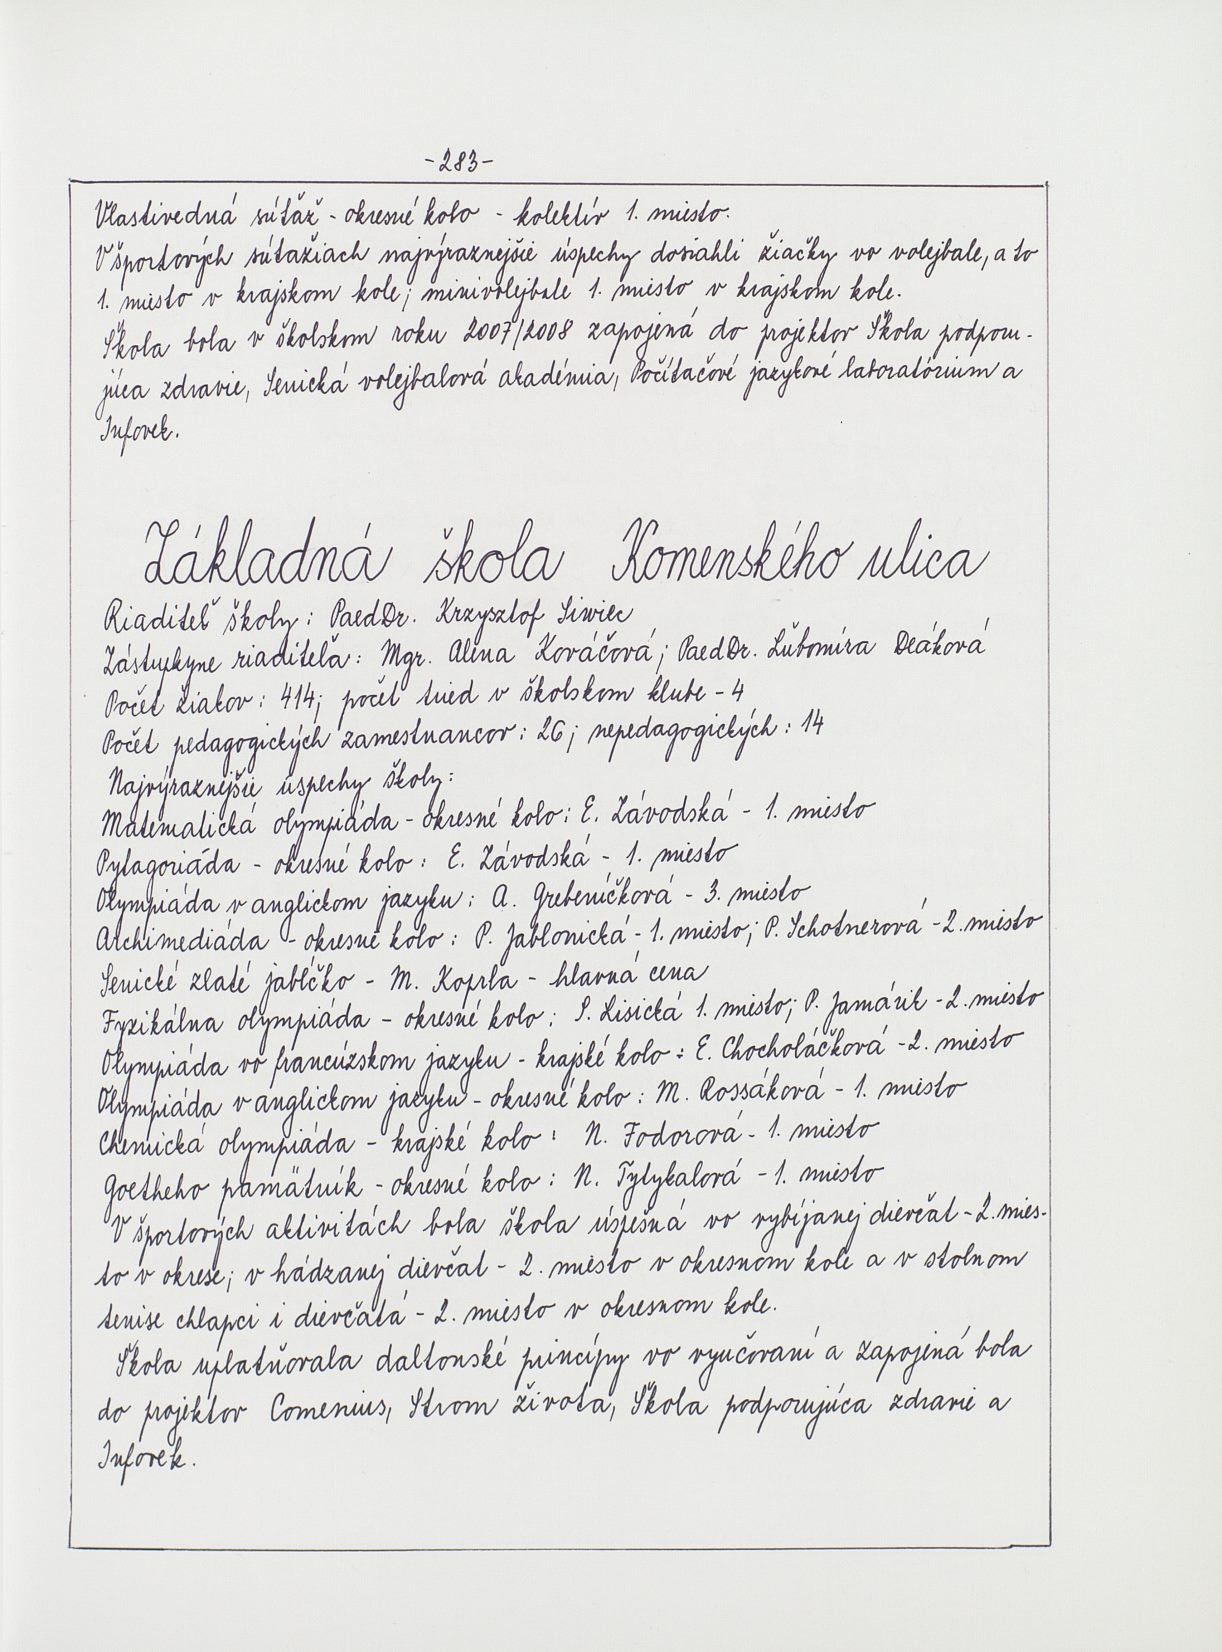 -283-
Vlastivedná súťaž - okresné kolo - kolektív 1. miesto.
V športových súťažiach najvýraznejšie úspechy dosiahli žiačky vo volejbale, a to
1. miesto v krajskom kole; minivolejbale 1. miesto v krajskom kole.
Škola bola v školskom roku 2007/2008 zapojená do projektov Škola podporu-
júca zdravie, Senická volejbalová akadémia, Počítačové jazykové laboratórium a
Infovek.
Základná škola Komenského ulica
Riaditeľ školy: PaedDr. Krzysztof Siwiec
Zástupkyne riaditeľa: Mgr. Alena Kováčová; PaedDr. Ľubomíra Deáková
Počet žiakov: 414; počet tried v školskom klube - 4
Počet pedagogických zamestnancov: 26; nepedagogických: 14
Najvýraznejšie úspechy školy:
Matematická olympiáda - okresné kolo: E. Závodská - 1. miesto
Pytagoriáda - okresné kolo: E. Závodská - 1. miesto
Olympiáda v anglickom jazyku: A. Grebeníčková - 3. miesto
Archimediáda - okresné kolo: P. Jablonická - 1. miesto; P. Schotnerová - 2. miesto
Senické zlaté jabĺčko - M. Koprla - hlavná cena
Fyzikálna olympiáda - okresné kolo: S. Lisická 1. miesto; P. Jamárik - 2. miesto
Olympiáda vo francúzskom jazyku - krajské kolo: E. Chocholáčková - 2. miesto
Olympiáda v anglickom jazyku - okresné kolo: M. Rossáková - 1. miesto
Chemická olympiáda - krajské kolo: N. Fodorová - 1. miesto
Goetheho pamätník - okresné kolo: N. Tytykalová - 1. miesto
V športových aktivitách bola škola úspešná vo vybíjanej dievčat - 2. mies-
to v okrese; v hádzanej dievčat - 2. miesto v okresnom kole a v stolnom
tenise chlapci i dievčatá - 2. miesto v okresnom kole.
Škola uplatňovala daltonské princípy vo vyučovaní a zapojená bola
do projektov Comenius, Strom života, Škola podporujúca zdravie a
Infovek.